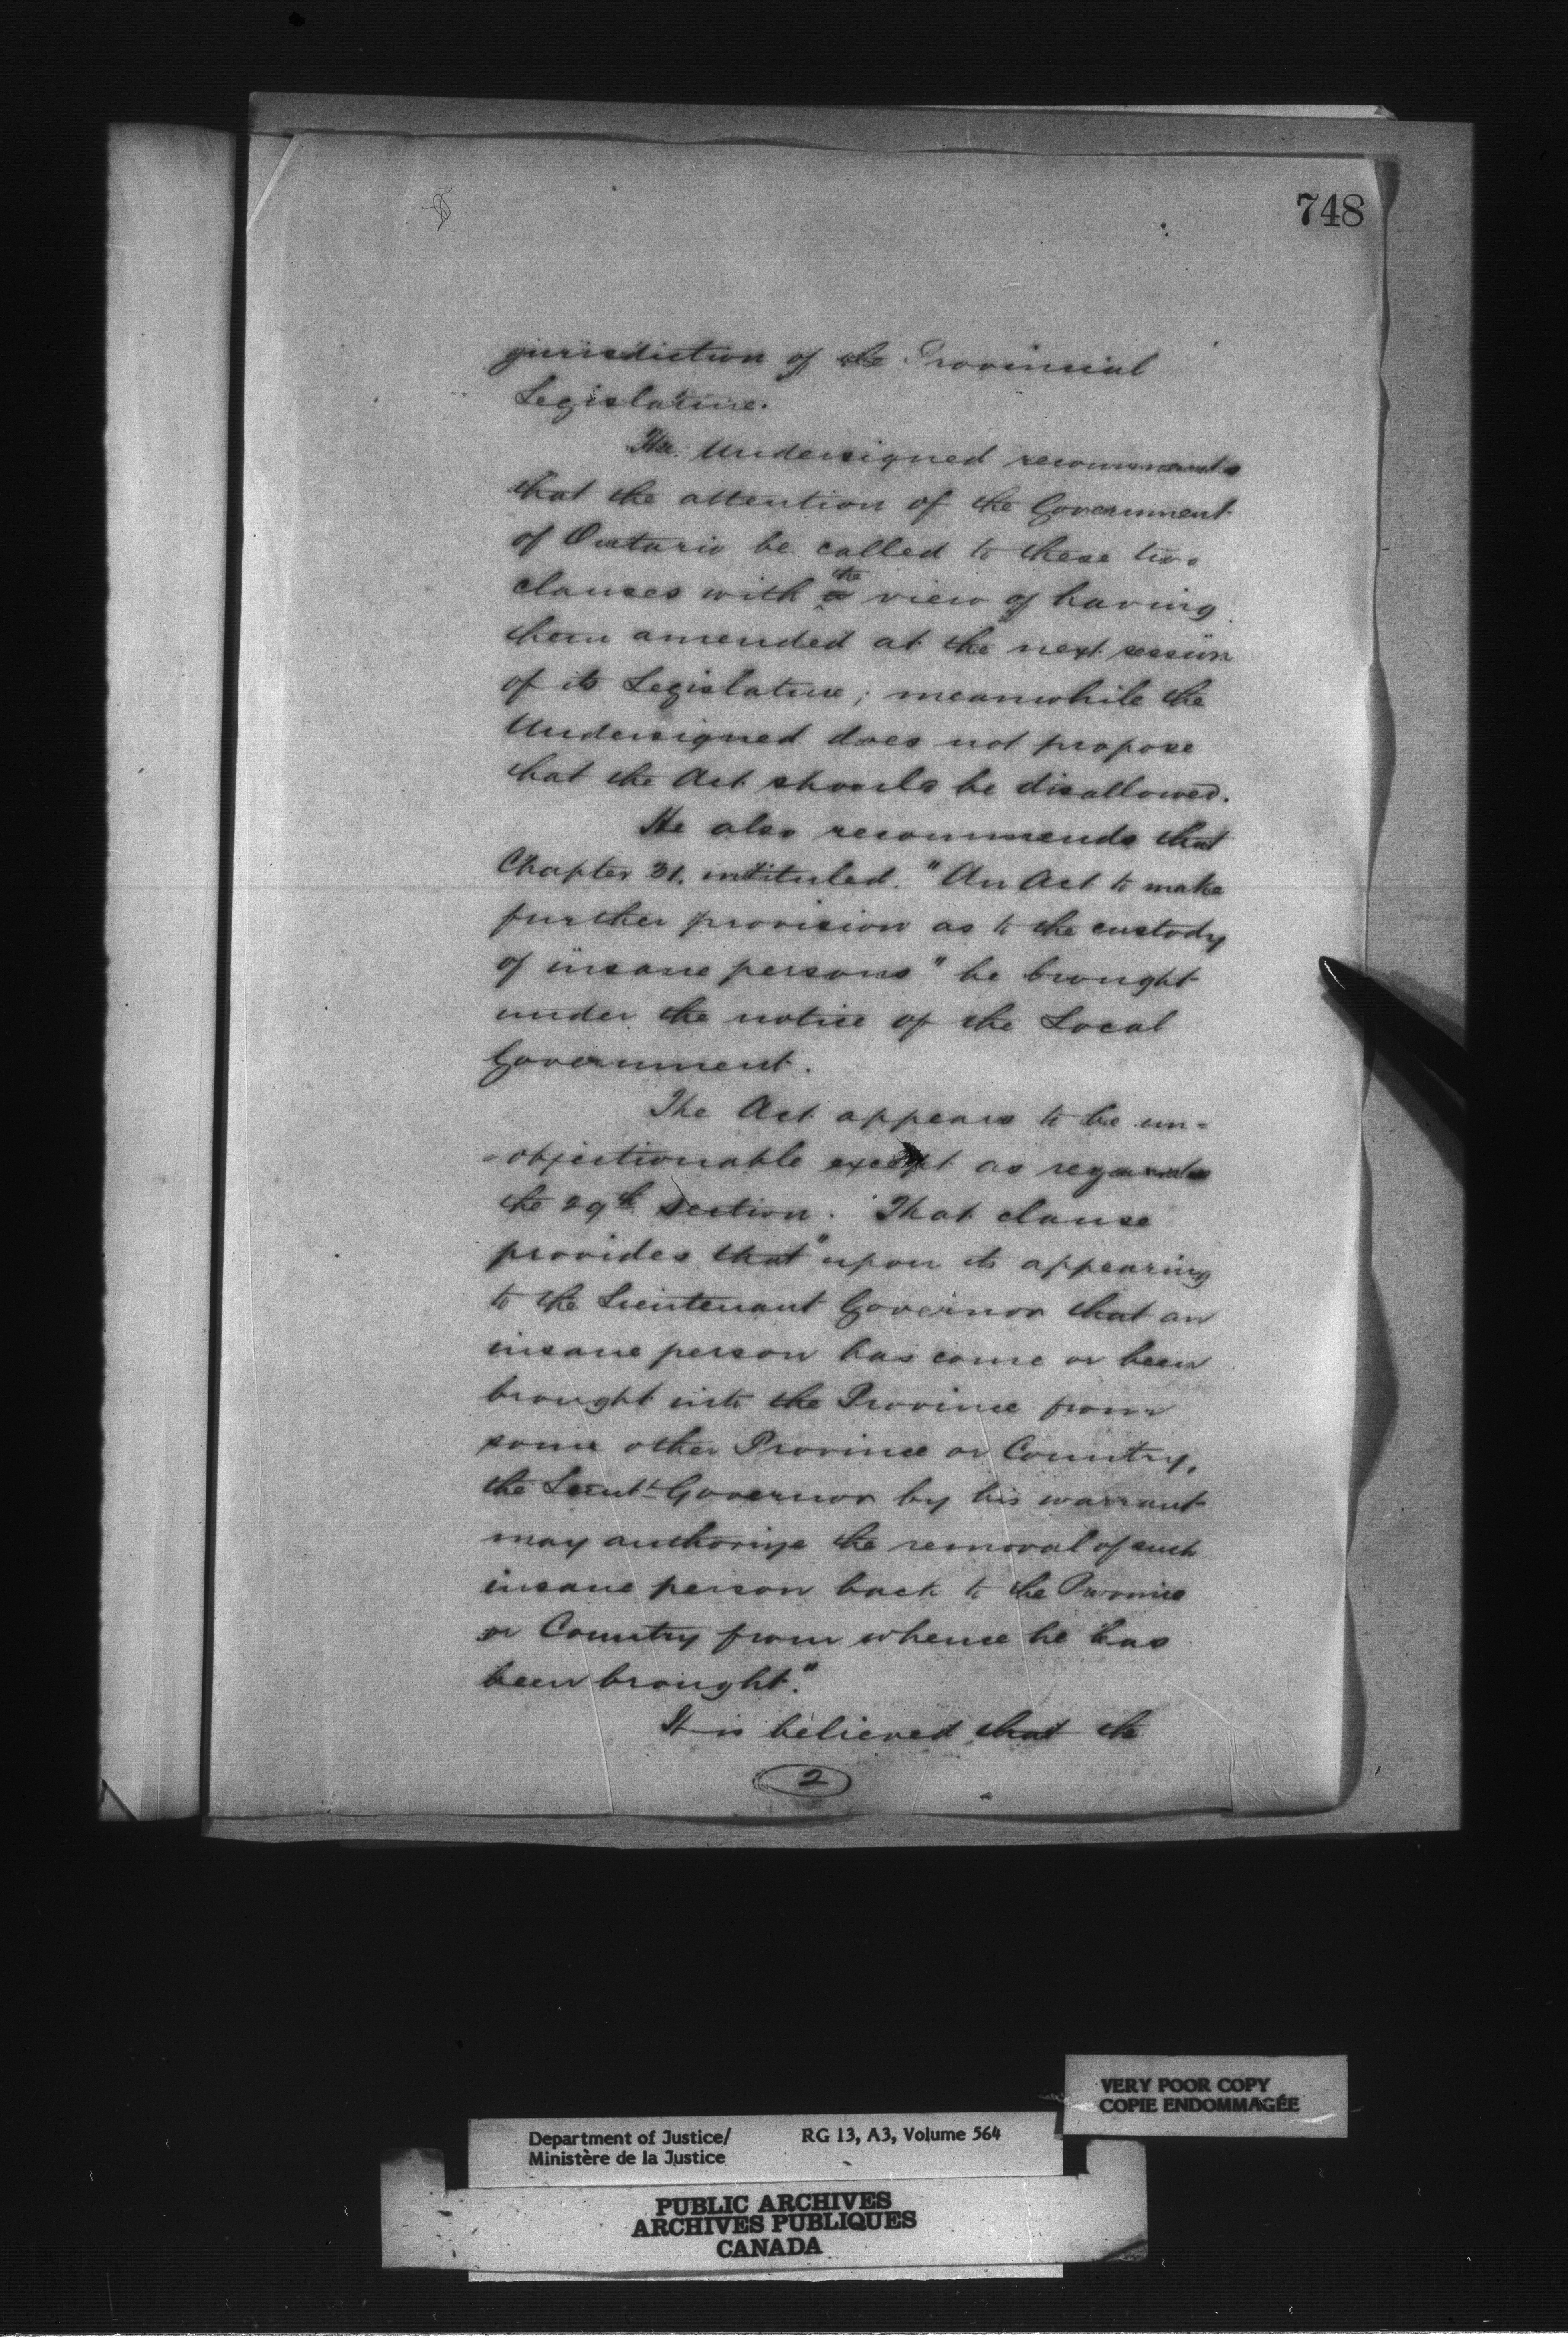 748
jurisdiction of the Provincial
Legislature.
The Undersigned recommends
that the attention of the Government
of Ontario be called to these two
clauses with a the view of having
them amended at the next session
of its Legislature; meanwhile the
Undersigned does not propose
that the Act should be disallowed.
He also recommends that
Chapter 31. intituled. "An Act to make
further provision as to the custody
of insane persons" be brought
under the notice of the Local
Government.
The Act appears to be un=
=objectionable except as regards
the 29th section. That clause
provides that "upon its appearing
to the Lieutenant Governor that an
insane person has come or been
brought into the Province from
some other Province or Country,
the Lieut Governor by his warrant
may authorize the removal of such
insane person back to the Province
or Country from whence he has
been brought."
It is believed that the
2
VERY POOR COPY
COPIE ENDOMMAGÉE
Department of Justice/ RG 13, A3, Volume 564
Ministère de la Justice
PUBLIC ARCHIVES
ARCHIVES PUBLIQUES
CANADA